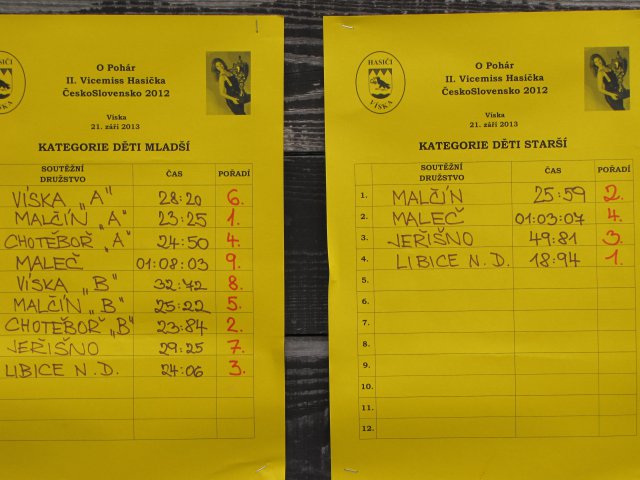 HASIČI
VÍSKA
O Pohár
II. Vicemiss Hasička
ČeskoSlovensko 2012
Víska
21. září 2013
KATEGORIE DĚTI MLADŠÍ
SOUTĚŽNÍ DRUŽSTVO ČAS POŘADÍ
VÍSKA „A" 28:20 6.
MALČÍN „A" 23:25 1.
CHOTĚBOŘ „A" 24:50 4.
MALEČ 01:08:03 9.
VÍSKA „B" 32:72 8.
MALČÍN „B" 25:22 5.
CHOTĚBOŘ „B" 23:84 2.
JEŘIŠNO 29:25 7.
LIBICE N.D. 24:06 3.
HASIČI
VÍSKA
O Pohár
II. Vicemiss Hasička
ČeskoSlovensko 2012
Víska
21. září 2013
KATEGORIE DĚTI STARŠÍ
SOUTĚŽNÍ DRUŽSTVO ČAS POŘADÍ
1. MALČÍN 25:59 2.
2. MALEČ 01:03:07 4.
3. JEŘIŠNO 49:81 3.
4. LIBICE N.D. 18:94 1.
5.
6.
7.
8.
9.
10.
11.
12.